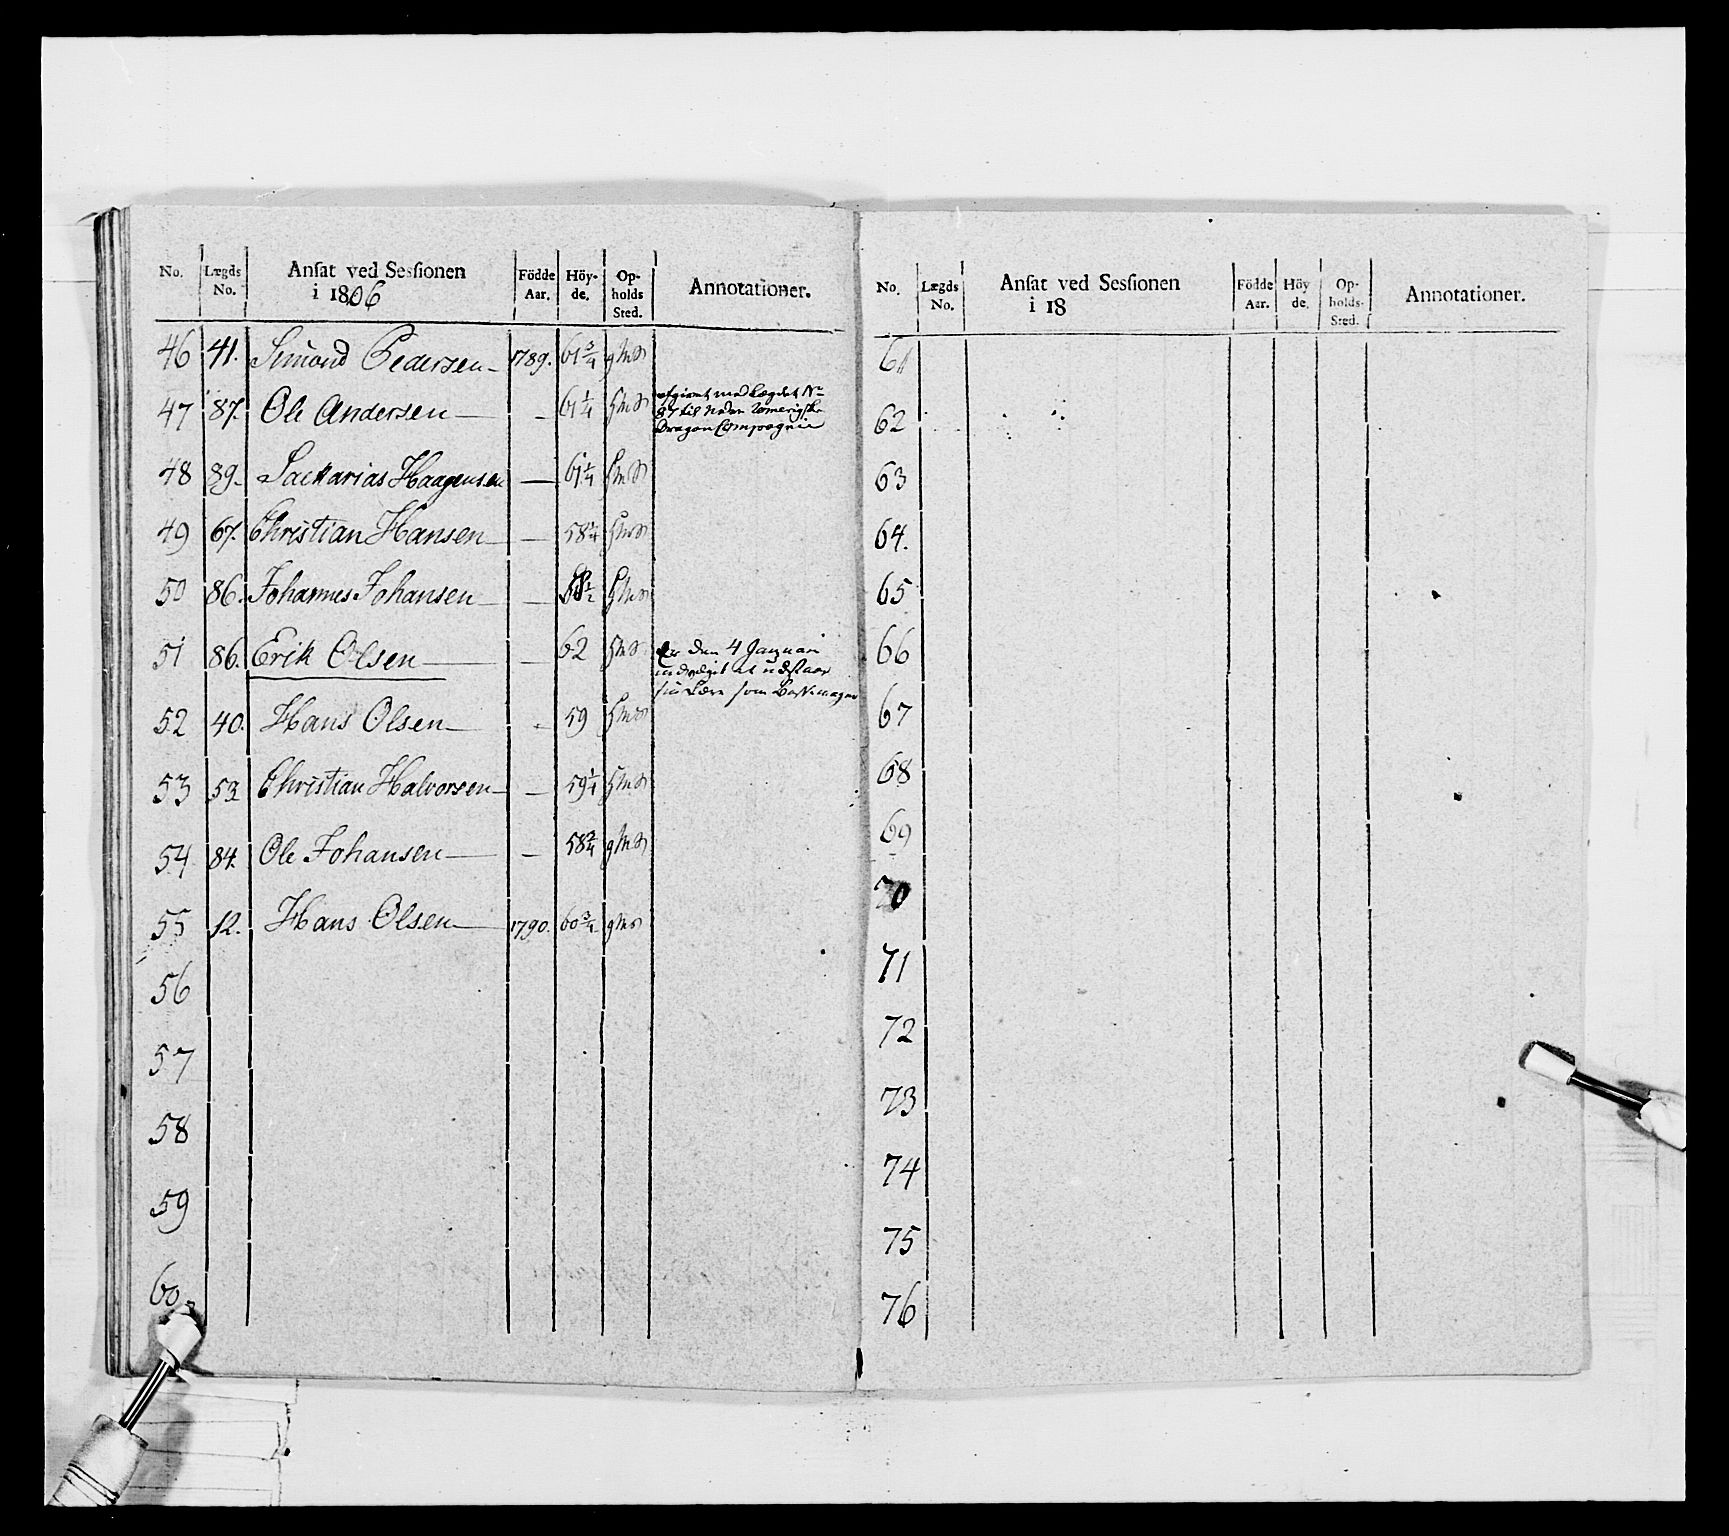 No. Lægds No. Ansat ved Sessionen i 1806 Födde Aar. Höy-de. Op-holds Sted. Annotationer.
46 41. Simond Pedersen 1789. 61 3/4
47 87. Ole Andersen — 61 1/4 afgivet med Lægdet No
87 til Neder Romerigske
Dragon Compagnie
48 89 Sackarias Haagensen — 61 1/4
49 67. Christian Hansen — 58 1/4
50 86. Johannes Johansen —
51 86. Erik Olsen — 62 den 4 Januari
at udstaae
som
52 40. Hans Olsen — 59
53 Christian Halvorsen — 59 1/4
54 84. Ole Johansen — 58 2/4
55 12. Hans Olsen 1790. 60 3/4
56
57
58
59
60
No. Lægds No. Ansat ved Sessionen i 18 Födde Aar. Höy de. Op-holds-Sted. Annotationer.
61
62
63
64.
65
66
67
68
69
70
71
72
73
74
75
76